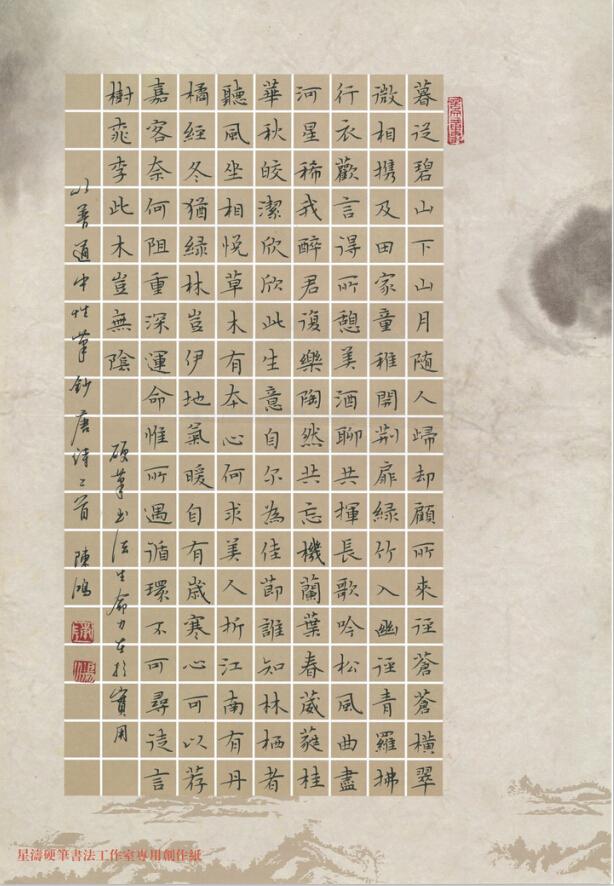 暮從碧山下山月隨人歸却顧所來逕蒼蒼橫翠
微相携及田家童稚開荊扉綠竹入幽逕青羅拂
行衣歡言得所憩美酒聊共揮長歌吟松風曲盡
河星稀我醉君復樂陶然共忘機蘭葉春葳蕤桂
華秋皎潔欣欣此生意自尔為佳節誰知林栖者
聽風坐相悅草木有本心何求美人折江南有丹
橘經冬猶綠林豈伊地氣暖自有歲寒心可以荐
嘉客奈何阻重深運命惟所遇循環不可尋徒言
樹桃李此木豈無陰 硬筆書法生命力在於實用
以普通中性筆鈔唐詩二首 陳鴻
星濤硬筆書法工作室專用創作紙